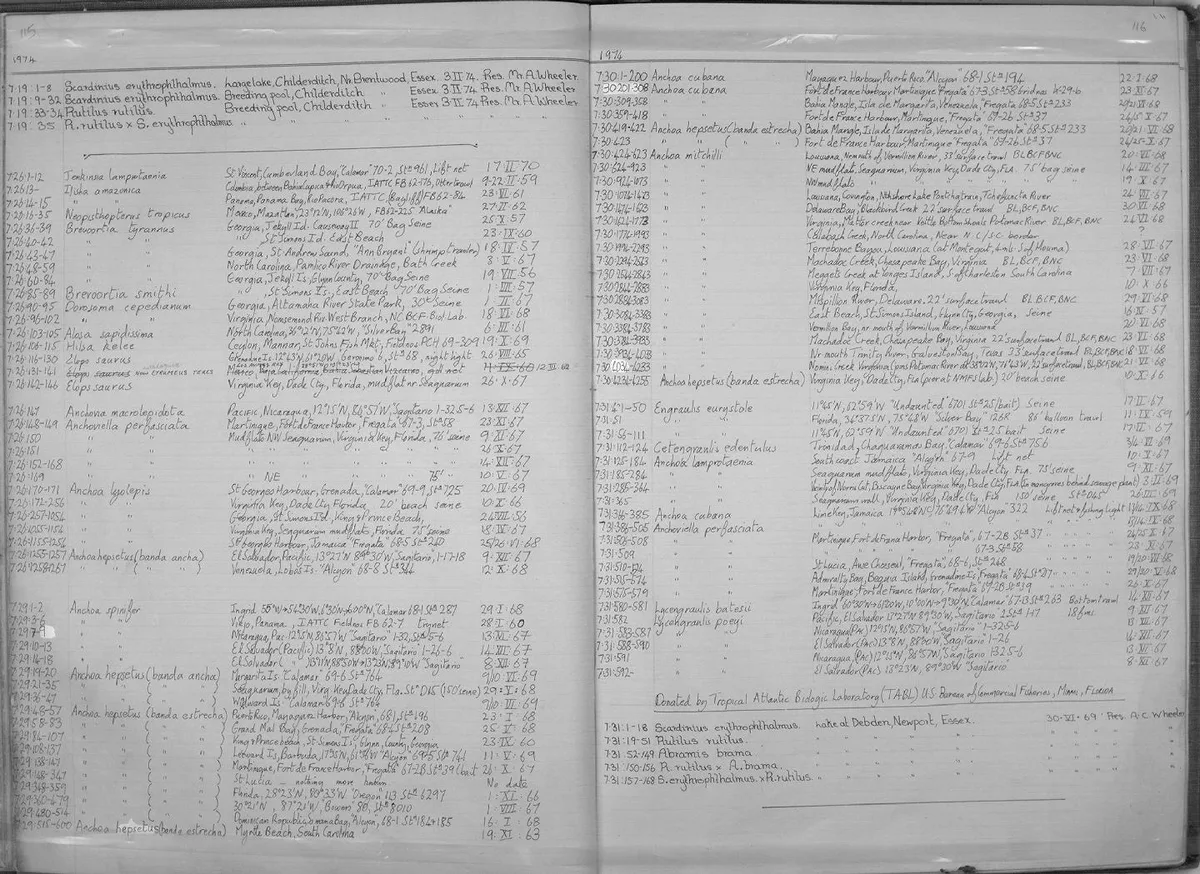 115
1974
7·19:1-8 Scardinius erythrophthalmus. Large lake, Childerditch, Nr. Brentwood, Essex. 3·II·74. Pres. Mr. A. Wheeler
7·19:9-32 Scardinius erythrophthalmus. Breeding pool, Childerditch " Essex 3·II·74. Pres. Mr. A Wheeler
7·19:33-34 Rutilus rutilus. Breeding pool, Childerditch " Essex 3·II·74 Pres. Mr. A Wheeler
7·19:35 R. rutilus x S. erythrophthalmus. " " " " "
7·26:1-12 Jenkinsia lamprotaenia St Vincent, Cumberland Bay, "Calamar" 70-2, Stn 961, Lift net 17·II·70
7·26:13- Ilisha amazonica Columbia, between IATTC FB 62-176, Otter trawl 9-22·II·59
7·26:14-15 " " Panama, Panama Bay, Rio Pacora, IATTC FB 62-84 23·VI·61
7·26:16-35 Neopisthopterus tropicus Mexico, Mazatlan, 23°12'N, 106°26'W, FB 62-225 "Alaska" 27·II·62
7·26:36-39 Brevoortia tyrannus Georgia, Jekyll Id. Causeway II 70' Bag Seine 25·X·57
7·26:40-42 " " " St Simons Id. East Beach 23·IX·60
7·26:43-47 " " Georgia, St Andrew Sound, "Ann Bryant" (Shrimp trawler) 18·IV·57
7·26:48-59 " " North Carolina, Pamlico River Drainage, Bath Creek 8·V·67
7·26:60-84 " " Georgia, Jekyll Is, Glynn County, 70' Bag Seine 19·VII·56
7·26:85-89 Brevoortia smithi " St Simons Is., East Beach 70' Bag Seine 1·III·57
7·26:90-95 Dorosoma cepedianum Georgia, Altamaha River State Park, 30' Seine 1·II·67
7·26:96-102 " " Virginia, Nansemond Riv. West Branch, NC BCF Biol. Lab. 18·VII·68
7·26:103-105 Alosa sapidissima North Carolina, 36°2'N, 75°42'W, "Silver Bay" 2891 6·III·61
7·26:106-115 Hilsa kelee Ceylon, Mannar, St Johns Fish Mkt, Fieldnos PCH 69-309 19·I·69
7·26:116-130 Elops saurus Grenadine Is. 12°43'N, 61°20'W, Geronimo 6, St 68, night light 26·VIII·65
7·26:131-141 Elops saurus
7·26:142-146 Elops saurus Virginia Key, Dade City, Florida, mudflat nr Seaquarium 26·X·67
7·26:147 Anchovia macrolepidota Pacific, Nicaragua, 12°15'N, 86°57'W, "Sagitario" 1-32,5-6 13·XII·67
7·26:148-149 Anchoviella perfasciata Martinique, Fort de France Harbor, "Fregata" 67-3, St 58 23·XI·67
7·26:150 " " Mudflat NW Seaquarium, Virginia Key, Florida, 76' seine 9·XI·67
7·26:151 " " " " " " " 26·X·67
7·26:152-168 " " " " " " " 14·XII·67
7·26:169 " " " NE " " 75' " 10·V·67
7·26:170-171 Anchoa lyolepis St Georges Harbour, Grenada, "Calamar" 69-9, St 725 20·IV·69
7·26:172-256 " " Virginia Key, Dade City, Florida 20' beach seine 10·X·66
7·26:257-1054 " " Georgia, St Simons Id, King & Prince Beach, 24·VII·56
7·26:1055-1154 " " Virginia Key, Seaquarium mudflats, Florida 75' seine 18·IV·67
7·26:1155-1254 " " Harbour, Jamaica "Fregata" 68-5 St 240 25/26·VI·68
7·26:1255-1257 Anchoa hepsetus (banda ancha) El Salvador, Pacific, 13°27'N, 89°30'W, "Sagitario", 1-17-18 9·XII·67
7·26:1258-1267 " " ( " " ) Venezuela, Lobos Is. "Alcyon" 68-8 St 344 12·X·68
7·29:1-2 Anchoa spinifer Ingrid 58°W+54°30'W, 6°30'N+7°00'N, "Calamar" 68-1 St 287 29·I·68
7·29:3-6 " " Viejo, Panama, IATTC Fieldnos FB 62-7 trynet 28·I·60
7·29:7-9 " " Nicaragua, Pac. 12°15'N, 86°57'W "Sagitario" 1-32,5-6 13·XII·67
7·29:10-13 " " El Salvador (Pacific) 13°8'N, 88°00'W, Sagitario 1-26-6 14·XII·67
7·29:14-18 " " El Salvador ( " ) "Sagitario" 8·XII·67
7·29:19-20 Anchoa hepsetus (banda ancha) Margarita Is. "Calamar" 69-6 St 764 9/10·VI·69
7·29:21-35 " " ( " " ) Seaquarium, by fill, Virg. Key, Dade City, Fla. St D15 (150' seine) 29·I·68
7·29:36-47 " " ( " " ) Is. "Calamar" 69-6 St 764 9/10·VI·69
7·29:48-57 Anchoa hepsetus (banda estrecha) Puerto Rico, Mayaguez Harbor, Alcyon, 68-1 St 196 23·I·68
7·29:58-83 " " ( " " ) Grand Mal Bay, Grenada, "Fregata" 68-4 St 208 25·V·68
7·29:84-107 " " ( " " ) King & Prince beach, St Simons Is, Glynn County, Georgia 23·IX·60
7·29:108-137 " " ( " " ) Leeward Is, Barbuda, "Alcyon" 69-5 St 741 11·V·69
7·29:138-147 " " ( " " ) Martinique, Fort de France Harbor, "Fregata" 67-2B St 39 (bait) 26·X·67
7·29:148-347 " " ( " " ) St Lucia – nothing more known No date
7·29:348-359 " " ( " " ) Florida, 28°23'N, 80°33'W "Oregon" 113 St 6297 1·XI·66
7·29:360-479 " " ( " " ) 30°21'N, 87°21'W, Bowers 86, St 8010 1·VIII·67
7·29:480-514 " " ( " " ) Dominican Republic, Bay, "Alcyon", 68-1 St 184+185 16·I·68
7·29:515-600 Anchoa hepsetus (banda estrecha) Myrtle Beach, South Carolina 19·XI·63
116
1974
7·30:1-200 Anchoa cubana Mayaguez Harbour, Puerto Rico "Alcyon" 68-1 Stn 194 22·I·68
7·30:201-308 Anchoa cubana Fort de France Harbour, Martinique "Fregata" 67-3, St 58 23·XI·67
7·30:309-358 " " Bahia Mangle, Isla de Margarita, Venezuela, "Fregata" 68-5 Stn 233 20/21·VI·68
7·30:359-418 " " Fort de France Harbour, Martinique, "Fregata" 67-2b St 37 24/25·X·67
7·30:419-422 Anchoa hepsetus (banda estrecha) Bahia Mangle, Isla de Margarita, Venezuela, "Fregata" 68-5 Stn 233 20/21·VI·68
7·30:423 " " ( " " ) Fort de France Harbour, Martinique "Fregata" 67-2b St 37 24/25·X·67
7·30:424-623 Anchoa mitchilli Louisiana, Near mouth of Vermillion River, 33' surface trawl BL, BCF, BNC 20·VI·68
7·30:624-923 " " NE mudflats, Seaquarium, Virginia Key, Dade City, Fla. 75' bag seine 14·VII·67
7·30:924-1073 " " NW mudflats " " " " 19·X·67
7·30:1074-1473 " " Louisiana, Covington, Nth shore Lake Pontchartrain, Tchefuncta River 24·VII·67
7·30:1474-1623 " " Delaware Bay, Blackbird Creek 22' surface trawl BL, BCF, BNC 30·VII·68
7·30:1624-1773 " " Virginia, Mattox creek near Kettle Bottom Shoals Potomac River BL, BCF, BNC 24·VI·68
7·30:1774-1993 " " Calabash Creek, North Carolina, Near N.C/S.C. border ?
7·30:1994-2293 " " Terrebonne Bayou, Louisiana (at Montegut, 4 mls. S of Houma) 28·VI·67
7·30:2294-2543 " " Machodoc Creek, Chesapeake Bay, Virginia BL, BCF, BNC 23·VI·68
7·30:2544-2843 " " Meggets Creek at Yonges Island, S of Charleston South Carolina 7·VIII·67
7·30:2844-2883 " " Virginia Key, Florida, 10·X·66
7·30:2884-3083 " " Mispillion River, Delaware. 22' surface trawl BL, BCF, BNC 29·VII·68
7·30:3084-3383 " " East Beach, St Simons Island, Glynn City, Georgia, seine 16·IV·57
7·30:3384-3783 " " Vermilion Bay, nr mouth of Vermilion River, Louisiana 20·VI·68
7·30:3784-3933 " " Machodoc Creek, Chesapeake Bay, Virginia 22' surface trawl BL, BCF, BNC 23·VI·68
7·30:3934-4033 " " Nr mouth Trinity River, Galveston Bay, Texas 23' surface trawl BL, BCF, BNC 18·VI·68
7·30:4034-4233 " " Nomini Creek, Virginia (on Potomac River at 38°12'N, 76°43'W, 22' surface trawl, BL, BCF, BNC 21·VI·68
7·30:4234-4255 Anchoa hepsetus (banda estrecha) Virginia Key, Dade City, Fla (pier at NMFS lab.) 20' beach seine 10·X·66
7·31:1-50 Engraulis eurystole 11°45'N, 62°59'W "Undaunted" 6701 St 25 (bait) Seine 17·II·67
7·31:51 " " Florida, 36°37·5'N, 75°48'W "Silver Bay" 1268 86' balloon trawl 11·IX·59
7·31:56-111 " " 11°45'N, 62°59'W "Undaunted" 6701 St 25 bait Seine 17·II·67
7·31:112-124 Cetengraulis edentulus Trinidad, Chaguaramas Bay, "Calamar" 69-6 St 756 3/4·VI·69
7·31:125-184 Anchoa lamprotaenia South coast Jamaica "Alcyon" 67-9 Lift net 10·X·67
7·31:185-284 " " Seaquarium mudflat, Virginia Key, Dade City, Fla. 75' seine 9·XI·67
7·31:285-364 " " Biscayne Bay, Virginia Key, Dade City, Fla (in mangroves behind sewage plant) 3·III·69
7·31:365 " " Seaquarium wall, Virginia Key, Dade City, Fla 150' seine St D045 26·III·69
7·31:366-385 Anchoa cubana Lime Key, Jamaica 17°54'48"N, 76°49'4"W Alcyon 322 Lift net & fishing light 13/14·IX·68
7·31:386-505 Anchoviella perfasciata 13/14·IX·68
7·31:506-508 " " Martinique, Fort de France Harbor, "Fregata", 67-2B St 37 24/25·X·67
7·31:509 " " " " " " " 67-3 St 58 " " 23·XI·67
7·31:510-514 " " St Lucia, Anse Choiseul, "Fregata", 68-6, St 248 19/20·VII·68
7·31:515-574 " " Admiralty Bay, Bequia Island, Grenadine Is, "Fregata" 68-4 29/30·V·68
7·31:575-579 " " Martinique, Fort de France Harbour, "Fregata" 67-2B St 39 26·X·67
7·31:580-581 Lycengraulis batesii Ingrid 60°30'W+61°20'W, 10°00'N+9°30'N, "Calamar" 67-13 St 263 Bottom trawl 14·XII·67
7·31:582 Lycengraulis poeyi Pacific, El Salvador 13°27'N 89°30'W, "Sagitario" 18 fms. 9·XII·67
7·31:583-587 " " Nicaragua (Pac) 12°15'N, 86°57'W, "Sagitario" 1-32,5-6 13·XII·67
7·31:588-590 " " El Salvador (Pac) 13°8'N, 88°00'W, Sagitario 1-26 14·XII·67
7·31:591 " " Nicaragua (Pac) 12°15'N, 86°57'W, Sagitario 1-32,5-6 13·XII·67
7·31:592- " " El Salvador (Pac) 13°23'N, 89°30'W Sagitario 8·XII·67
Donated by Tropical Atlantic Biologic Laboratory (TABL) U.S. Bureau of Commercial Fisheries, Miami, Florida
7·31:1-18 Scardinius erythrophthalmus. Lake at Debden, Newport, Essex. 30·VI·69 Pres. A.C. Wheeler
7·31:19-51 Rutilus rutilus. " " " " " "
7·31:52-149 Abramis brama. " " " " " "
7·31:150-156 R. rutilus x A. brama. " " " " " "
7·31:157-168 S. erythrophthalmus x R. rutilus " " " " " "